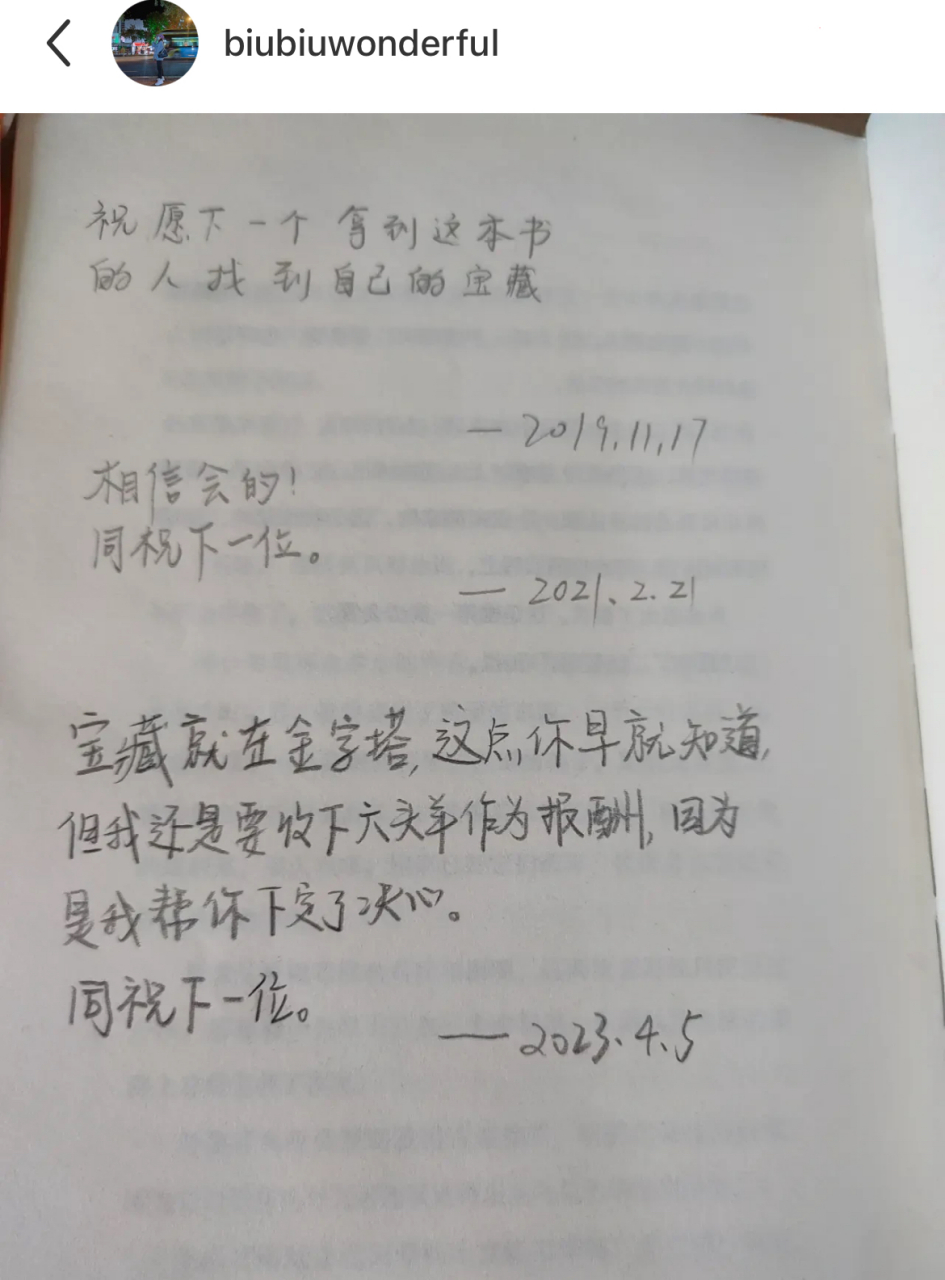 biubiuwonderful
祝愿下一个拿到这本书
的人找到自己的宝藏
— 2019.11.17
相信会的!
同祝下一位。
— 2021.2.21
宝藏就在金字塔,这点你早就知道,
但我还是要收下六头羊作为报酬,因为
是我帮你下定了决心。
同祝下一位。
— 2023.4.5